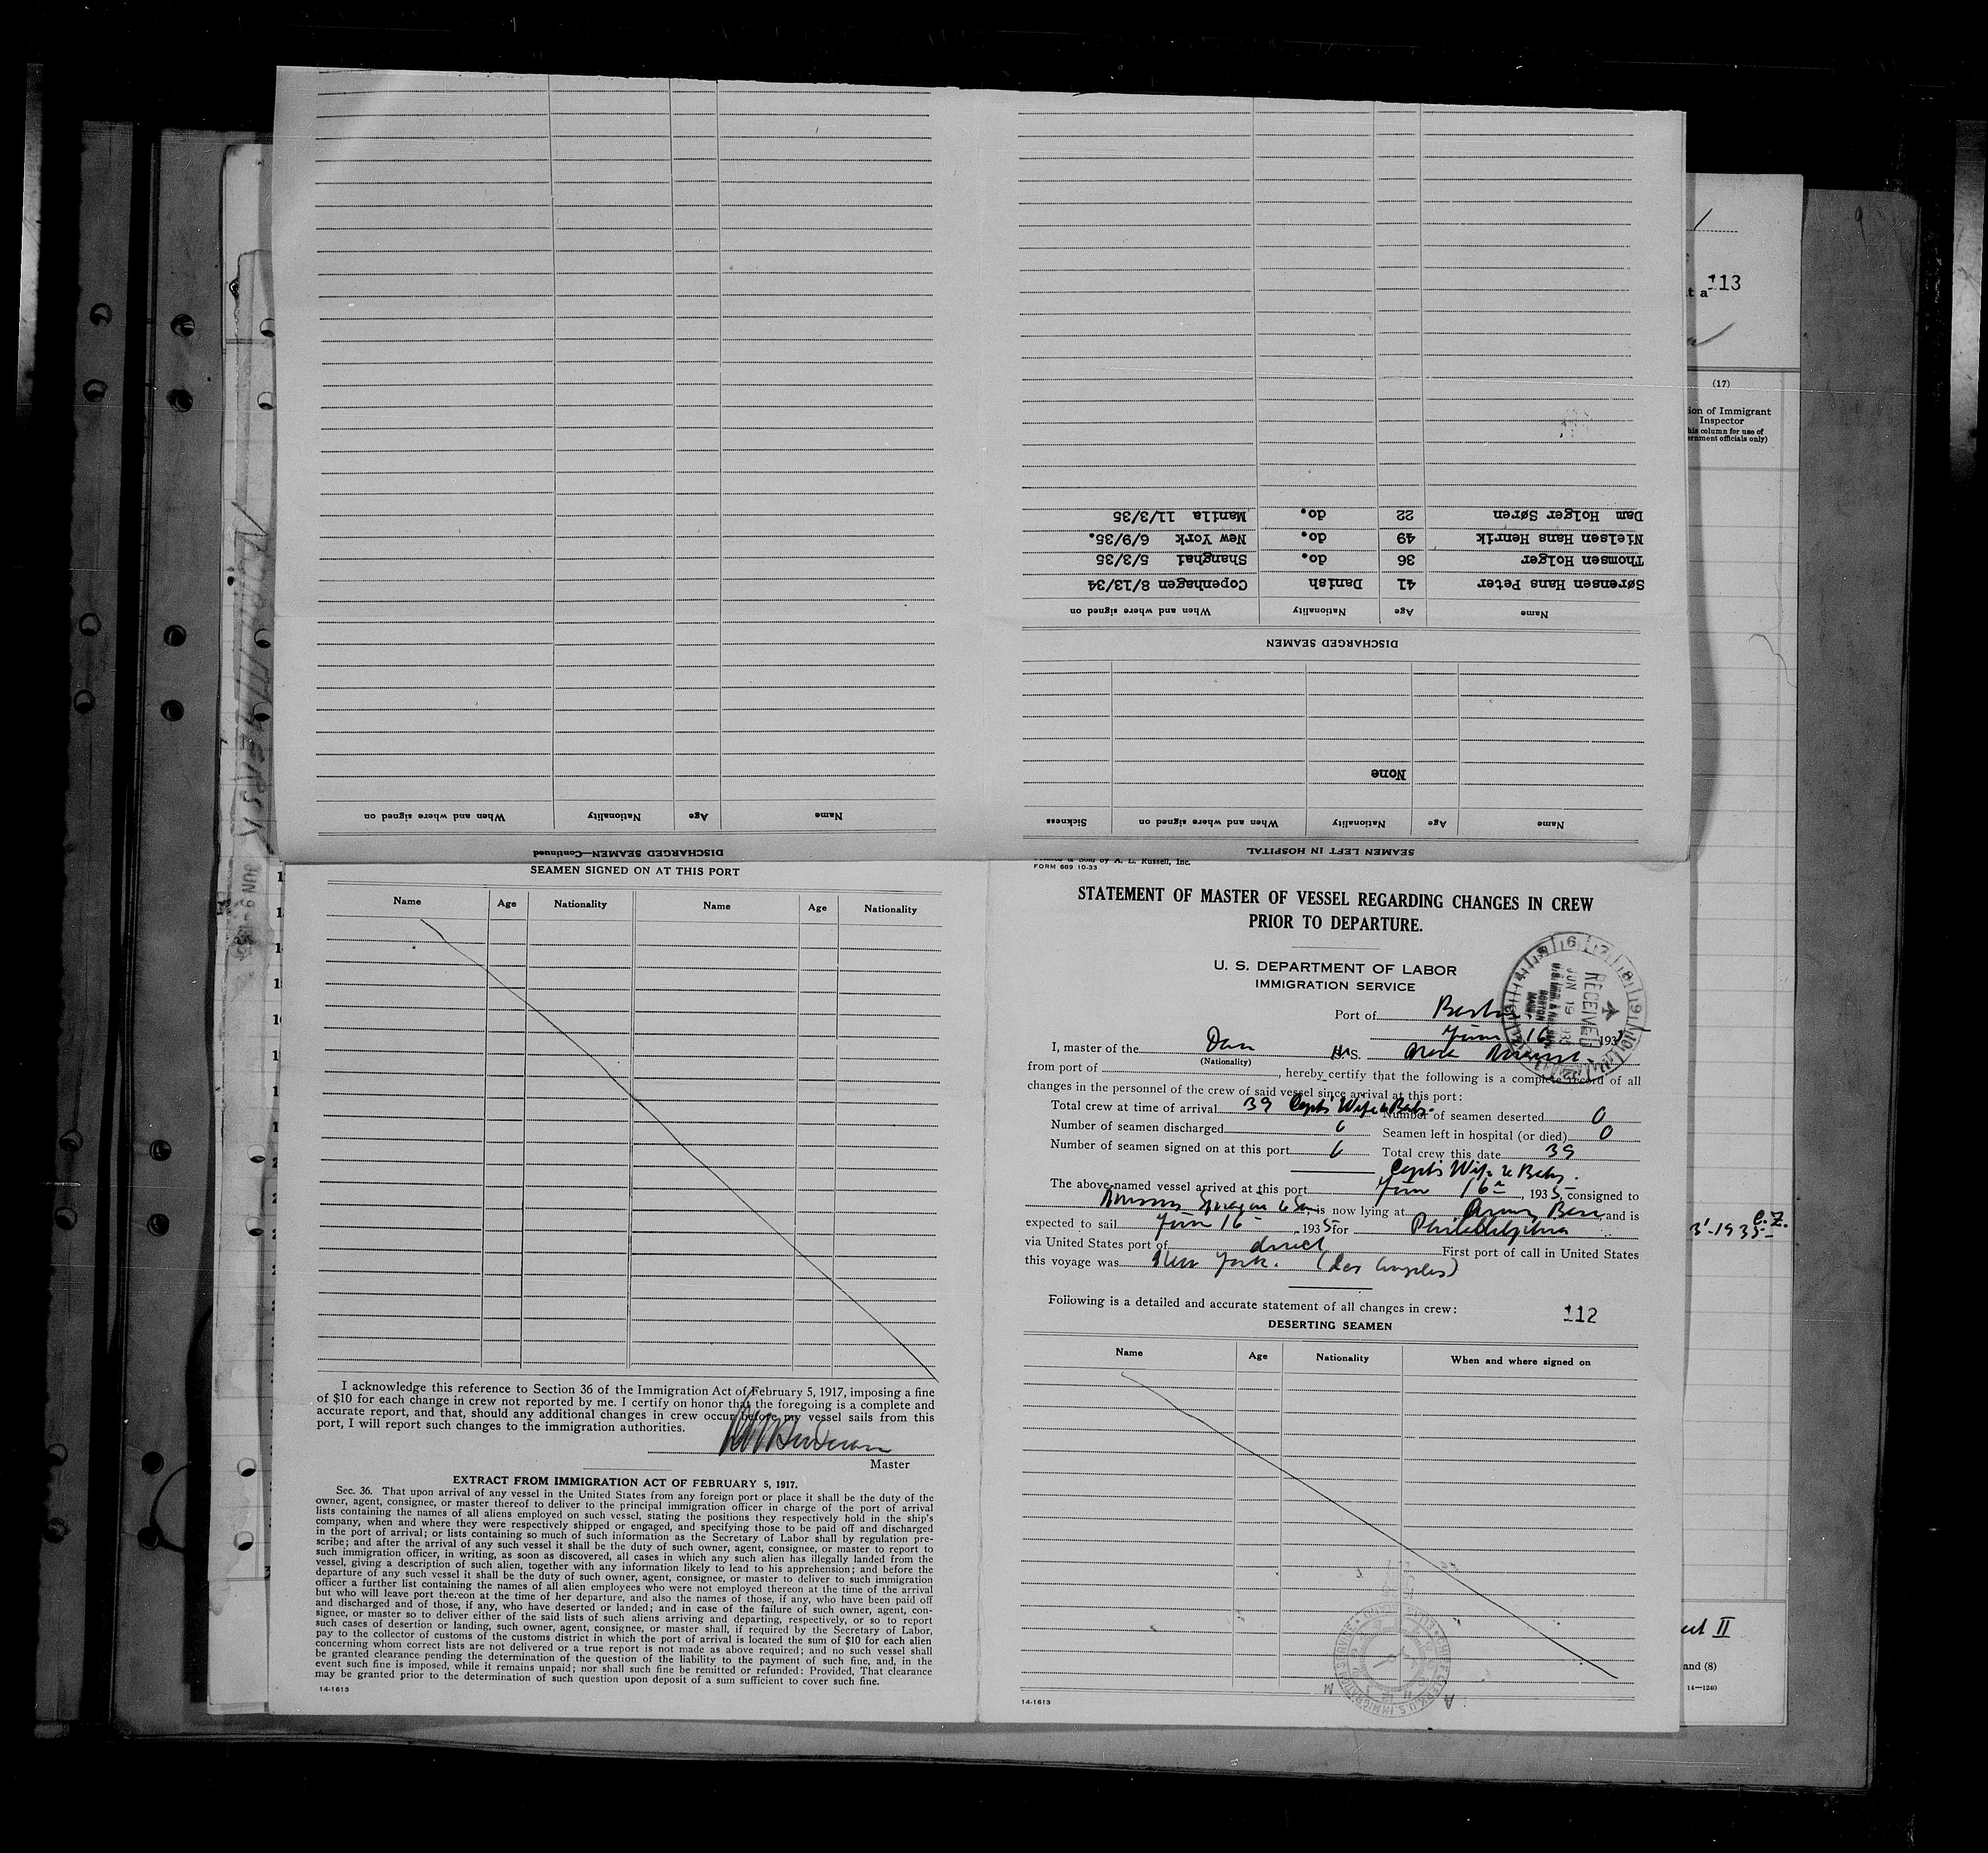 DISCHARGED SEAMEN—Continued
Name Age Nationality When and where signed on
SEAMEN LEFT IN HOSPITAL
Name Age Nationality When and where signed on Sickness
None
DISCHARGED SEAMEN
Name Age Nationality When and where signed on
Sørensen Hans Peter 41 Danish Copenhagen 8/13/34
Thomsen Holger 36 do. Shanghai 5/3/35
Nielsen Hans Henrik 49 do. New York 6/9/35.
Dam Holger Søren 22 do. Manila 11/3/35
SEAMEN SIGNED ON AT THIS PORT
Name Age Nationality Name Age Nationality
I acknowledge this reference to Section 36 of the Immigration Act of February 5, 1917, imposing a fine
of $10 for each change in crew not reported by me. I certify on honor that the foregoing is a complete and
accurate report, and that, should any additional changes in crew occur before my vessel sails from this
port, I will report such changes to the immigration authorities.
Master
EXTRACT FROM IMMIGRATION ACT OF FEBRUARY 5, 1917.
Sec. 36. That upon arrival of any vessel in the United States from any foreign port or place it shall be the duty of the
owner, agent, consignee, or master thereof to deliver to the principal immigration officer in charge of the port of arrival
lists containing the names of all aliens employed on such vessel, stating the positions they respectively hold in the ship's
company, when and where they were respectively shipped or engaged, and specifying those to be paid off and discharged
in the port of arrival; or lists containing so much of such information as the Secretary of Labor shall by regulation pre-
scribe; and after the arrival of any such vessel it shall be the duty of such owner, agent, consignee, or master to report to
such immigration officer, in writing, as soon as discovered, all cases in which any such alien has illegally landed from the
vessel, giving a description of such alien, together with any information likely to lead to his apprehension; and before the
departure of any such vessel it shall be the duty of such owner, agent, consignee, or master to deliver to such immigration
officer a further list containing the names of all alien employees who were not employed thereon at the time of the arrival
but who will leave port thereon at the time of her departure, and also the names of those, if any, who have been paid off
and discharged and of those, if any, who have deserted or landed; and in case of the failure of such owner, agent, con-
signee, or master so to deliver either of the said lists of such aliens arriving and departing, respectively, or so to report
such cases of desertion or landing, such owner, agent, consignee, or master shall, if required by the Secretary of Labor,
pay to the collector of customs of the customs district in which the port of arrival is located the sum of $10 for each alien
concerning whom correct lists are not delivered or a true report is not made as above required; and no such vessel shall
be granted clearance pending the determination of the question of the liability to the payment of such fine, and, in the
event such fine is imposed, while it remains unpaid; nor shall such fine be remitted or refunded: Provided, That clearance
may be granted prior to the determination of such question upon deposit of a sum sufficient to cover such fine.
14-1613
Printed & Sold by A. L. Russell, Inc.
FORM 689 10-33
STATEMENT OF MASTER OF VESSEL REGARDING CHANGES IN CREW
PRIOR TO DEPARTURE.
U. S. DEPARTMENT OF LABOR
IMMIGRATION SERVICE
RECEIVED
JUN 19
Port of Boston
June 16 193
I, master of the Dan M.S.
(Nationality)
from port of , hereby certify that the following is a complete record of all
changes in the personnel of the crew of said vessel since arrival at this port:
Total crew at time of arrival 39 Capts Wife & Baby. Number of seamen deserted 0
Number of seamen discharged Seamen left in hospital (or died) 0
Number of seamen signed on at this port Total crew this date 39
Capts Wife & Baby.
The above-named vessel arrived at this port June 16 , 1935, consigned to
Sprague & Son is now lying at Army Base and is
expected to sail June 16 , 1935 for Philadelphia
via United States port of direct First port of call in United States
this voyage was New York. (Los Angeles)
Following is a detailed and accurate statement of all changes in crew:
112
DESERTING SEAMEN
Name Age Nationality When and where signed on
14-1613
113
(17)
ion of Immigrant
Inspector
his column for use of
ernment officials only)
C.Z.
3'-1935
II
and (8)
14—1240